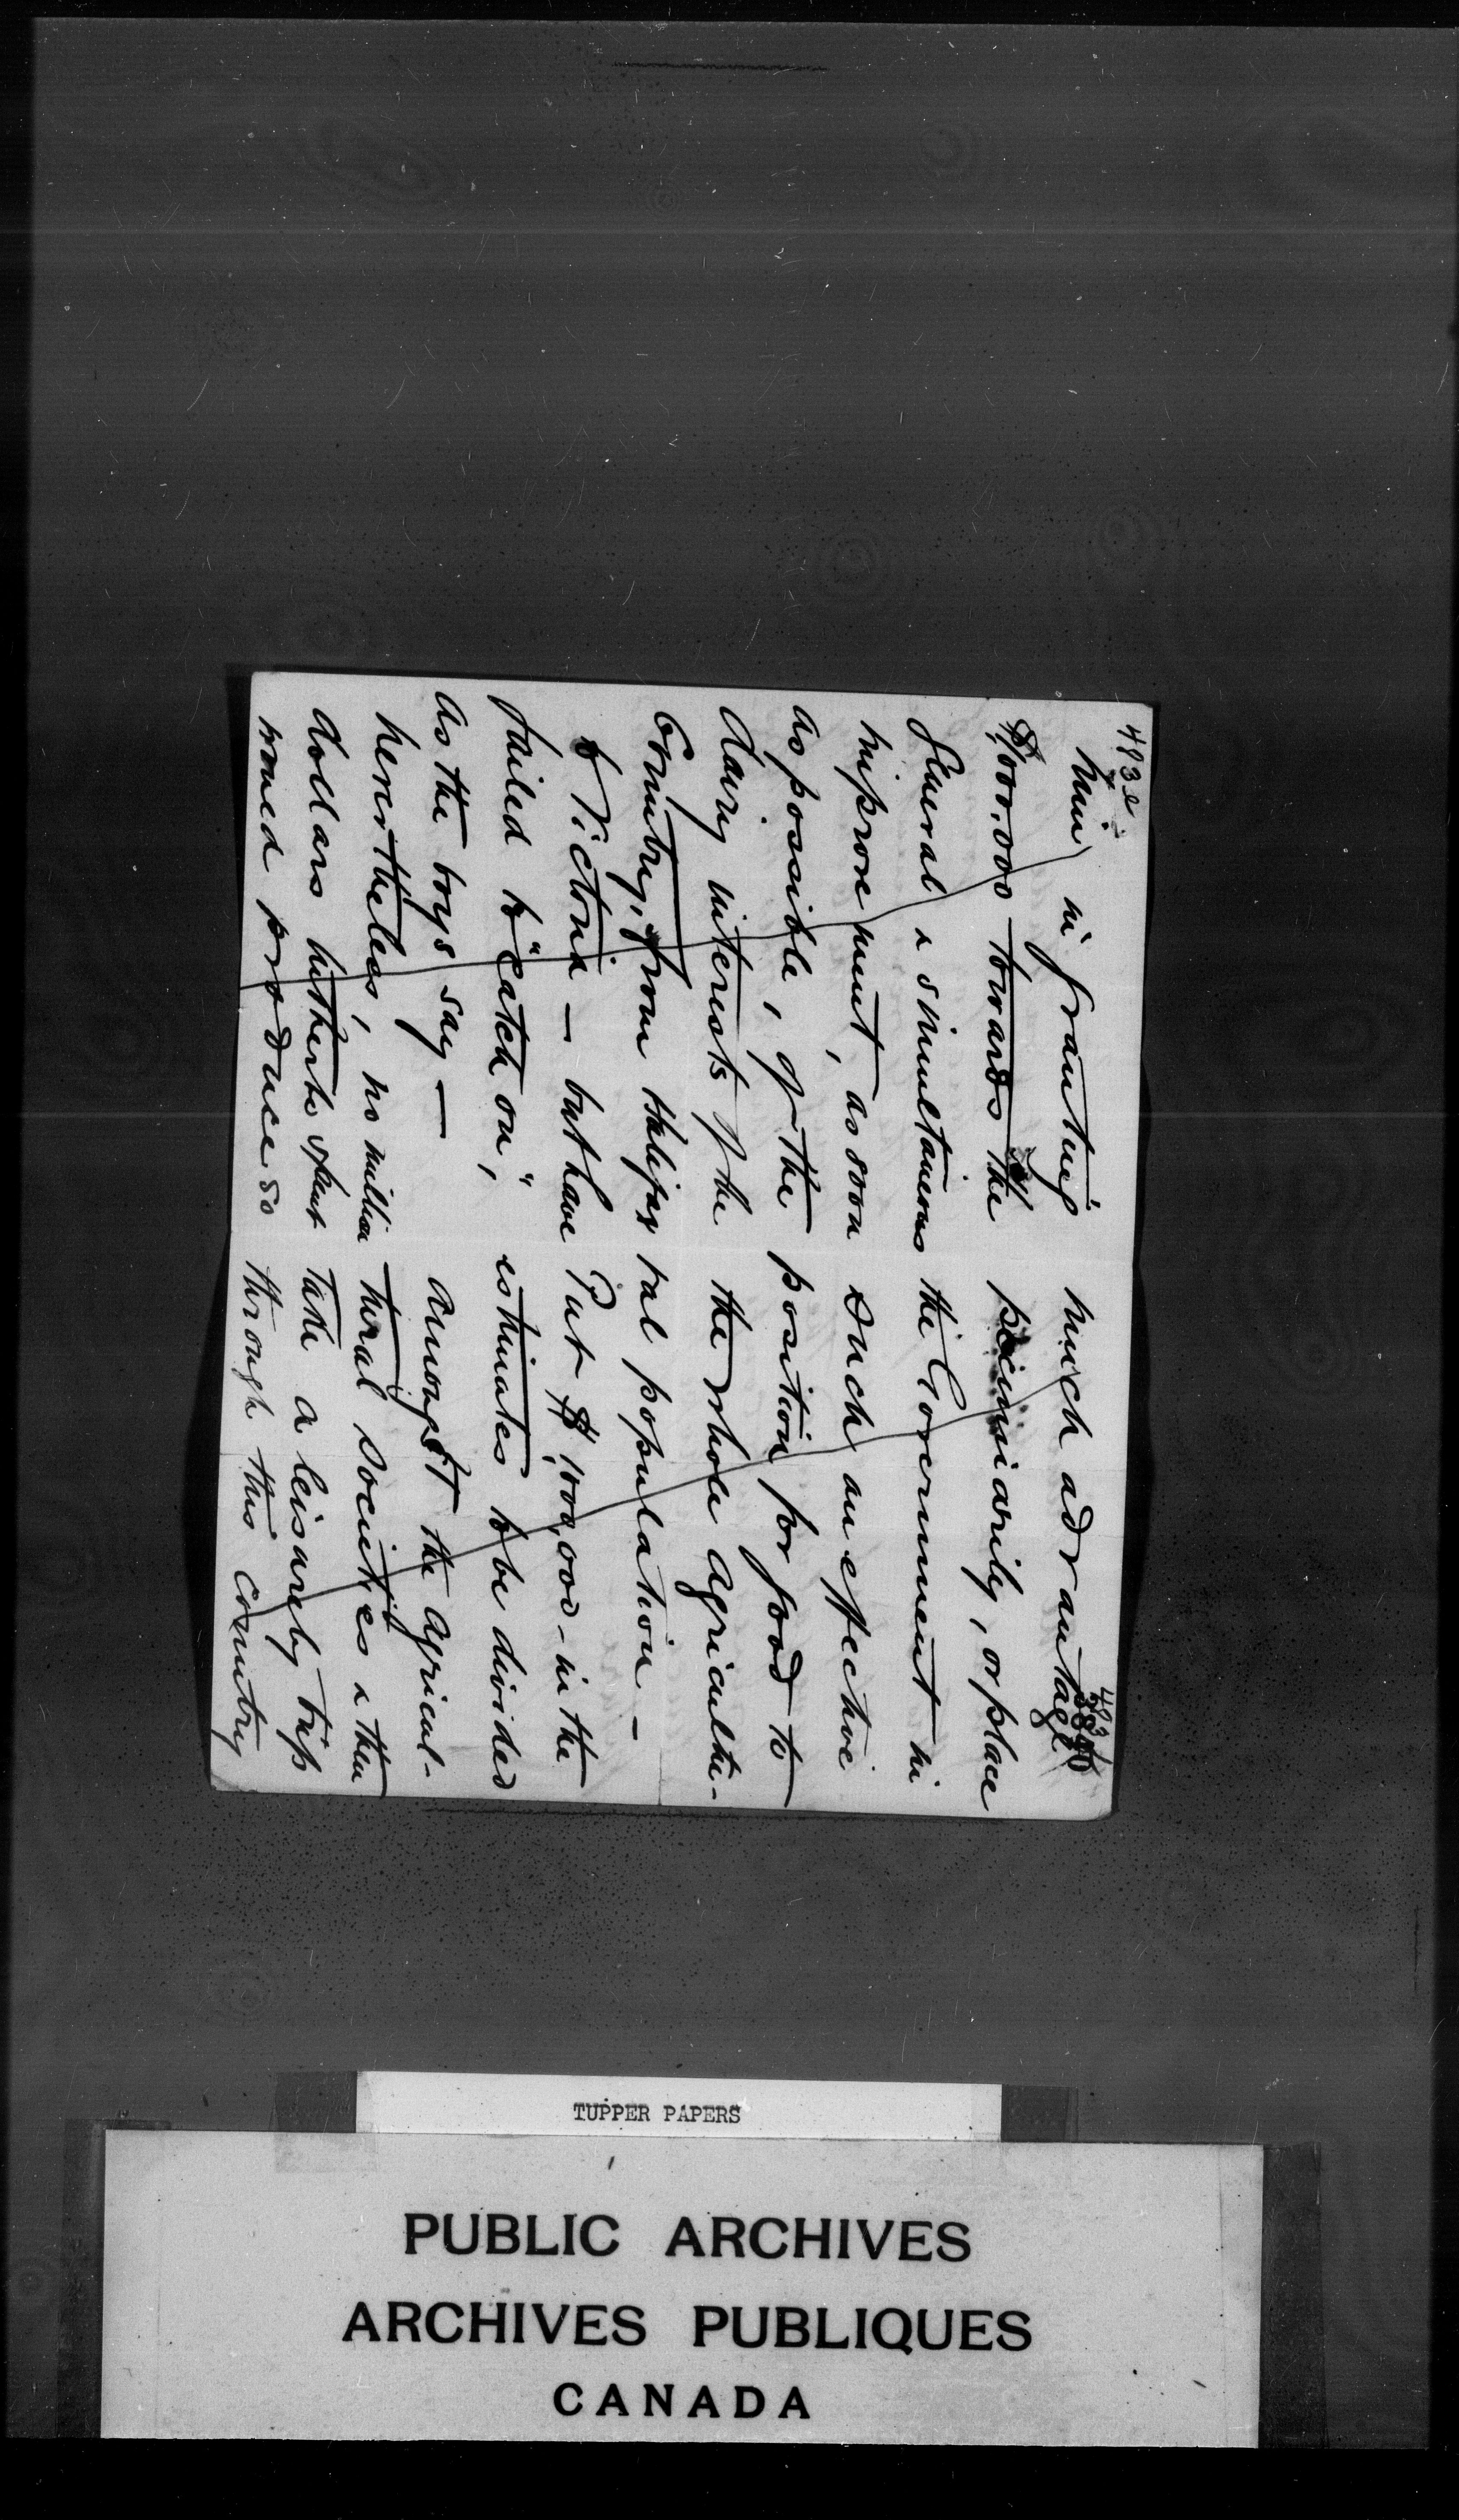 483e
him in granting
$1,000,000 towards the
general & simultaneous
improvement, as soon
as possible, of the
dairy interests of the
Country, from Halifax
to Victoria — but have
failed to "catch on",
as the boys say —
nevertheless, no million
dollars hitherto spent
would produce so
483
much advantage
pecuniarily, or place
the Government in
such an effective
position for good to
the whole agricultu-
ral population —
Put $1,000,000 - in the
estimates to be divided
amongst the agricul-
tural societies & then
take a leisurely trip
through this country
TUPPER PAPERS
PUBLIC ARCHIVES
ARCHIVES PUBLIQUES
CANADA